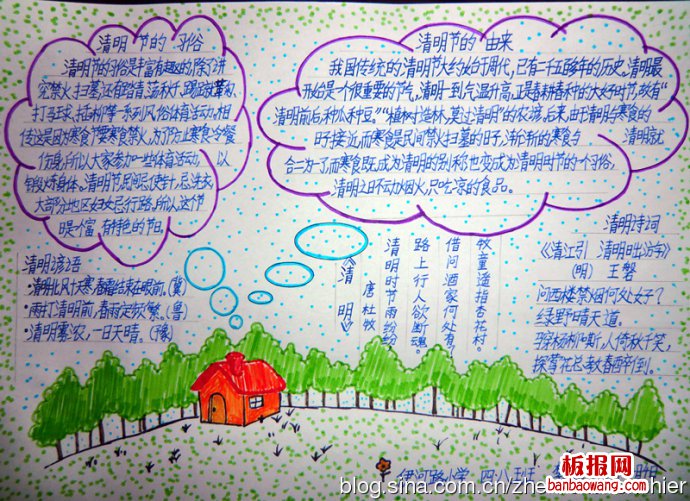 清明节的习俗
清明节的习俗是丰富有趣的,除了讲
究禁火、扫墓,还有踏青、荡秋千、踢蹴鞠、
打马球、插柳等一系列风俗体育活动。相
传这是因为寒食节要寒食禁火,为了防止寒食冷餐
伤身,所以大家参加一些体育活动,以
锻炼身体。清明节,民间忌使针,忌洗衣,
大部分地区妇女忌行路。所以,这个节
日是一个富有特色的节日。
清明节的由来
我国传统的清明节大约始于周代,已有二千五百多年的历史。清明最
开始是一个很重要的节气,清明一到,气温升高,正是春耕春种的大好时节,故有“
清明前后,种瓜种豆。”“植树造林,莫过清明”的农谚。后来,由于清明与寒食的
日子接近,而寒食是民间禁火扫墓的日子,渐渐的,寒食与清明就
合二为一了,而寒食既成为清明的别称,也变成为清明时节的一个习俗,
清明之日不动烟火,只吃凉的食品。
清明谚语
清明北风十天寒,春霜结束在眼前。(冀)
·雨打清明前,春雨定频繁。(鲁)
·清明雾浓,一日天晴。(豫)
《清明》
唐 杜牧
清明时节雨纷纷
路上行人欲断魂。
借问酒家何处有,
牧童遥指杏花村。
清明诗词
《清江引 清明日出游》
(明) 王磐
问西楼禁烟何处好?
绿野晴天道。
穿杨柳,
人倚秋千笑,
探莺花总教春醉倒。
伊河路小学 四·八班
板报网
banbaowang.com